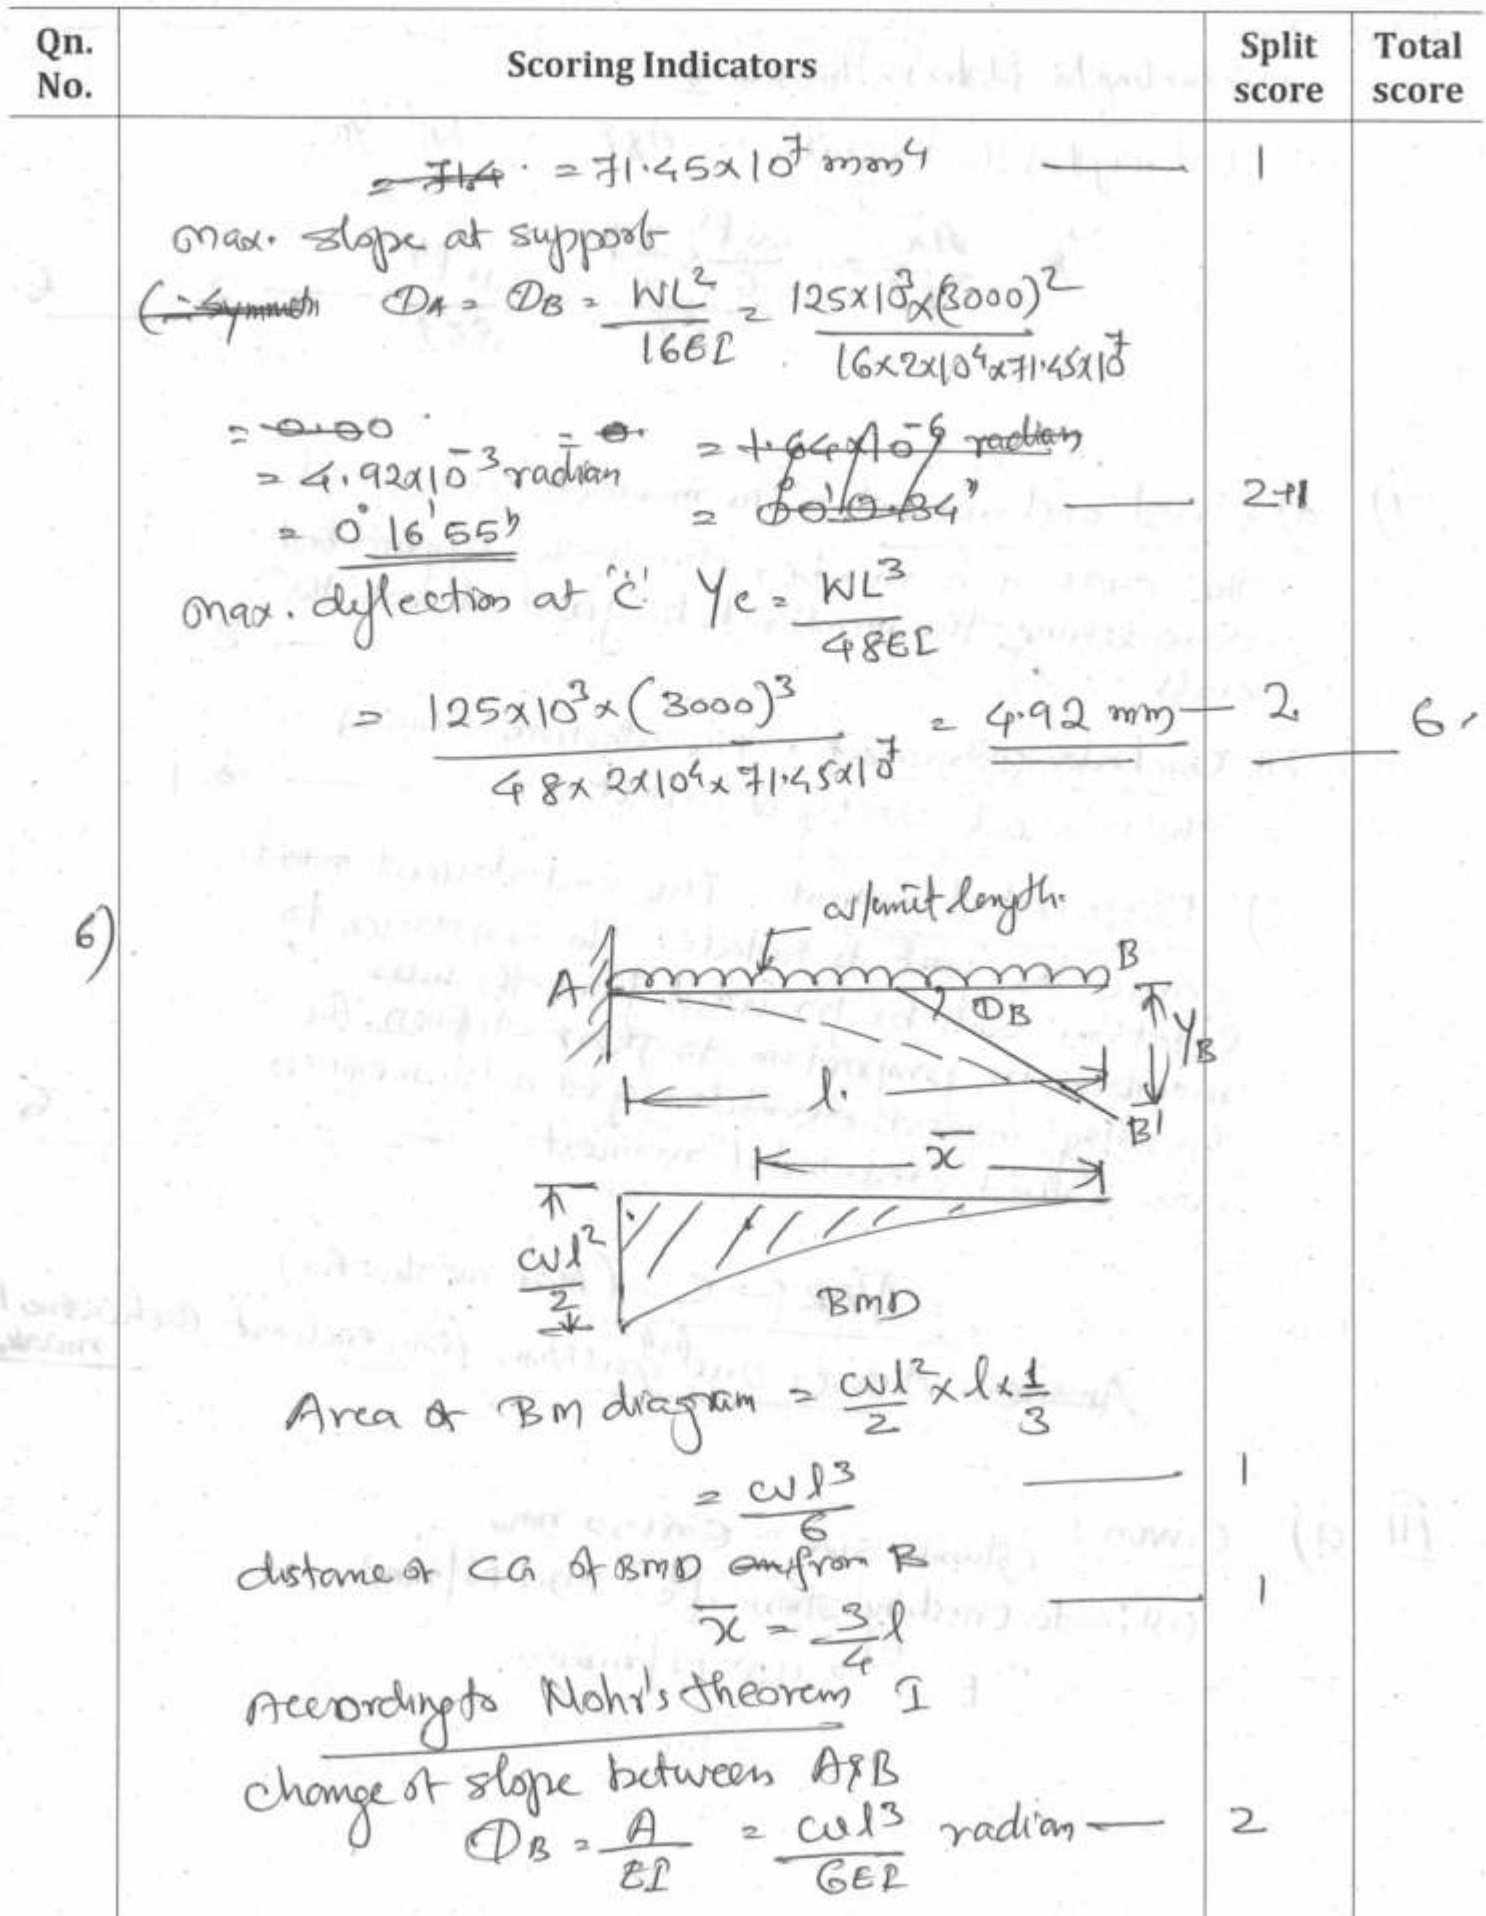 Qn. No.
Scoring Indicators
Split score
Total score
= 71.45×10⁷ mm⁴ — 1
max. slope at support
θA = θB = WL²/16EI = 125×10³×(3000)²/16×2×10⁴×71.45×10⁷
= 0.00 = 0. = 1.64×10⁻⁶ radian
= 4.92×10⁻³ radian
= 0°16'55" — 2+1
max. deflection at 'C' Yc = WL³/48EI
= 125×10³×(3000)³/48×2×10⁴×71.45×10⁷ = 4.92 mm — 2 6
6)
w/unit length.
A B
θB
YB
l.
B'
x̄
wl²/2
BMD
Area of BM diagram = wl²/2 × l × 1/3
= wl³/6 — 1
distance of CG of BMD from B
x̄ = 3/4 l — 1
According to Mohr's theorem I
change of slope between A & B
θB = A/EI = wl³/6EI radian — 2